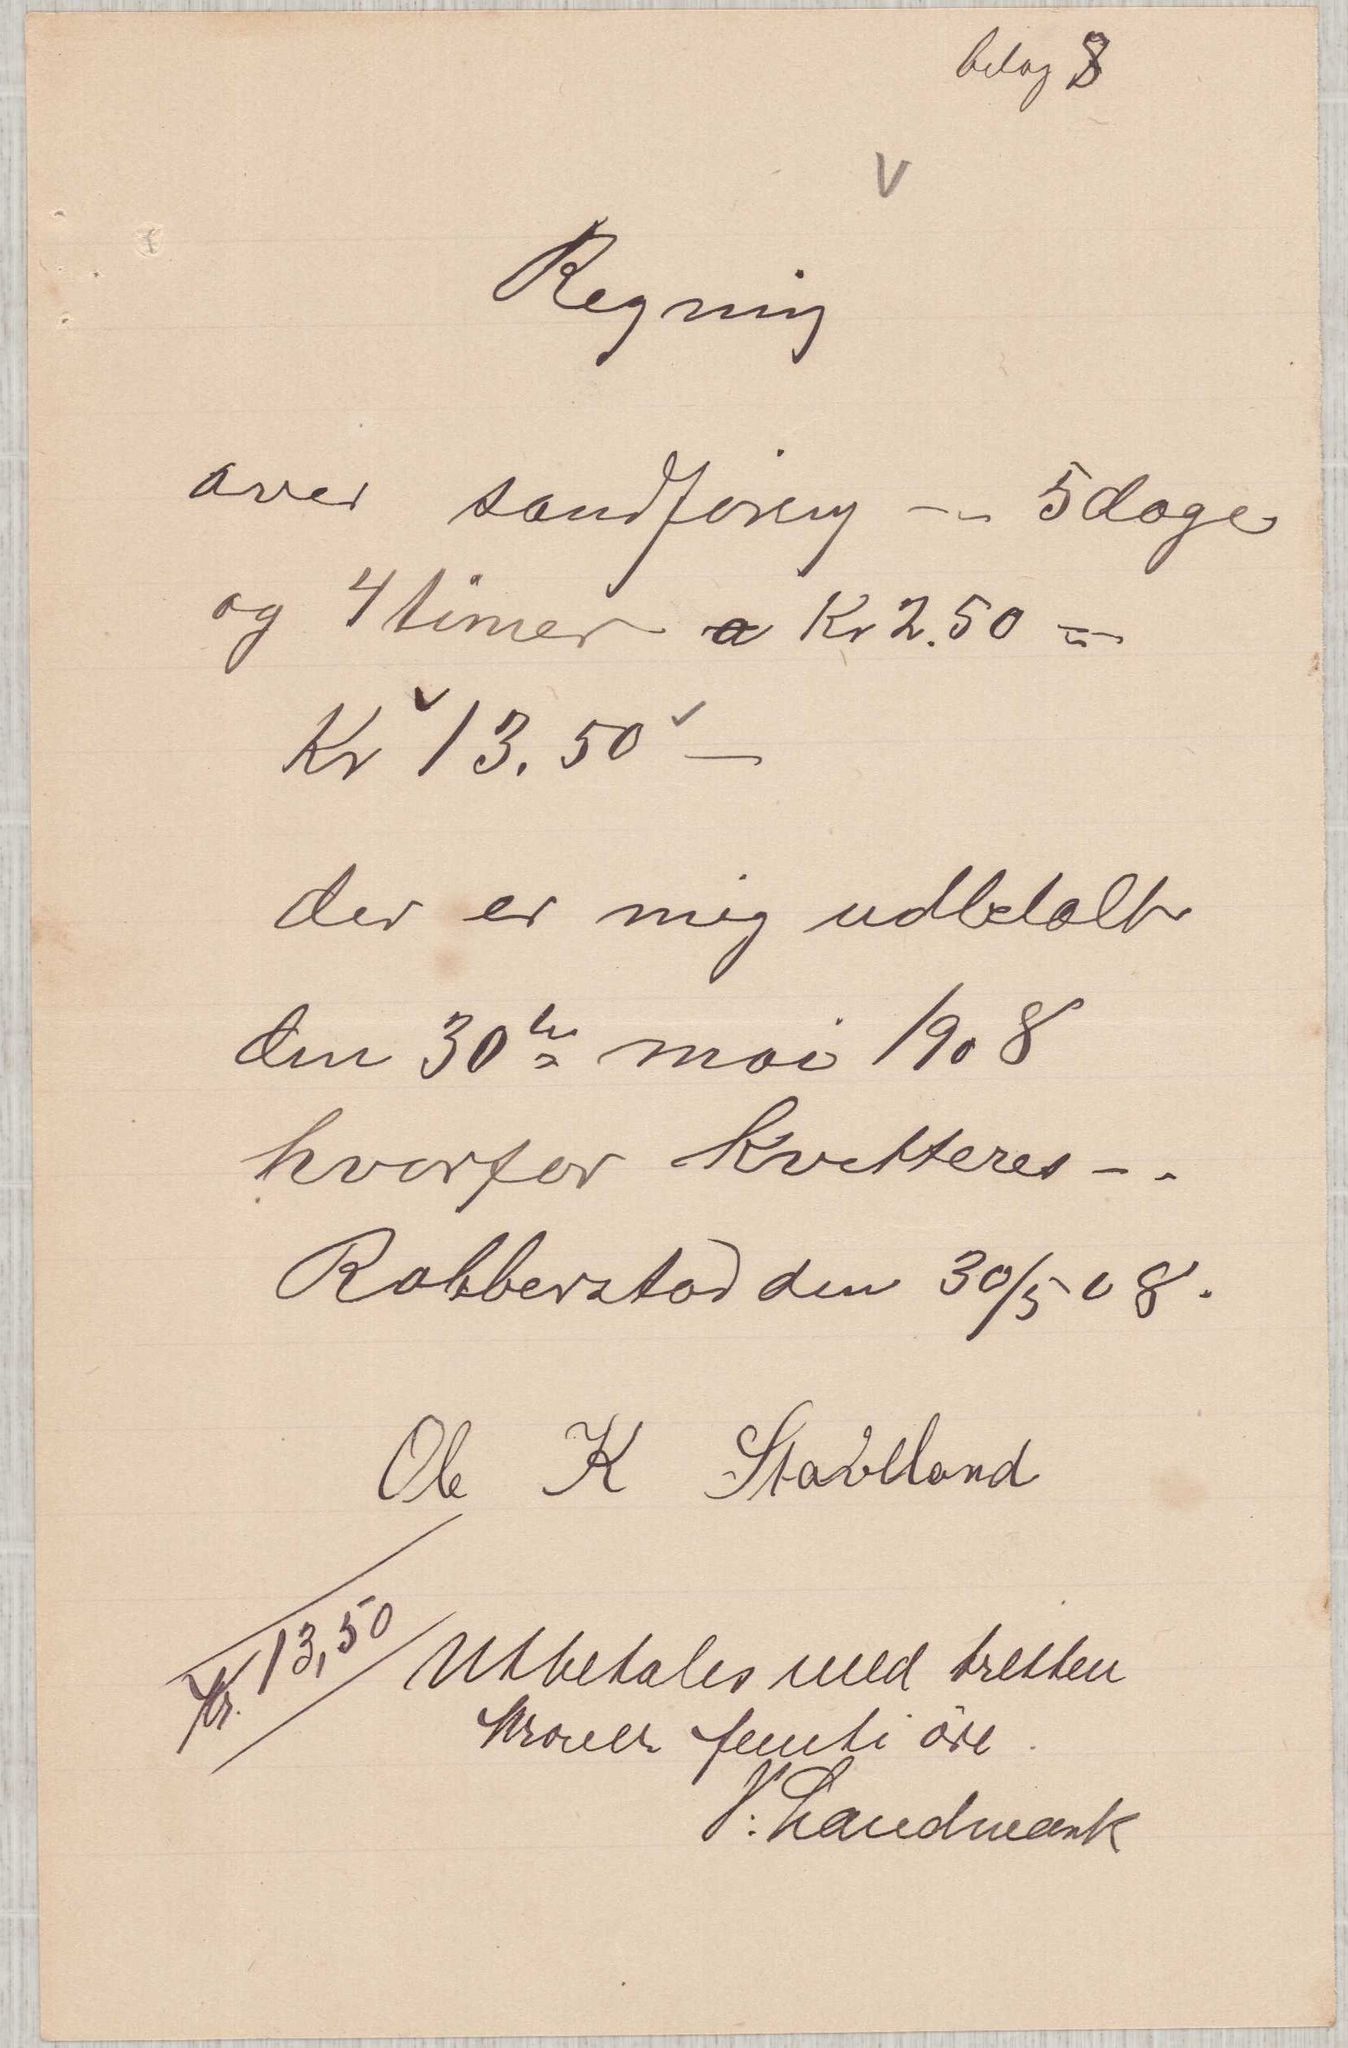 belag 8
V
Regning
over sandføring -- 5 dage
og 4 timer a Kr 2.50 =
Kr 13.50 -
der er mig udbetalt
den 30te mai 1908
hvorfor kvitteres - -
Rabberstad den 30/5 08.
Ole K Stavlland
Kr. 13,50
Utbetales med tretten
kroner femti öre.
V. Landmark